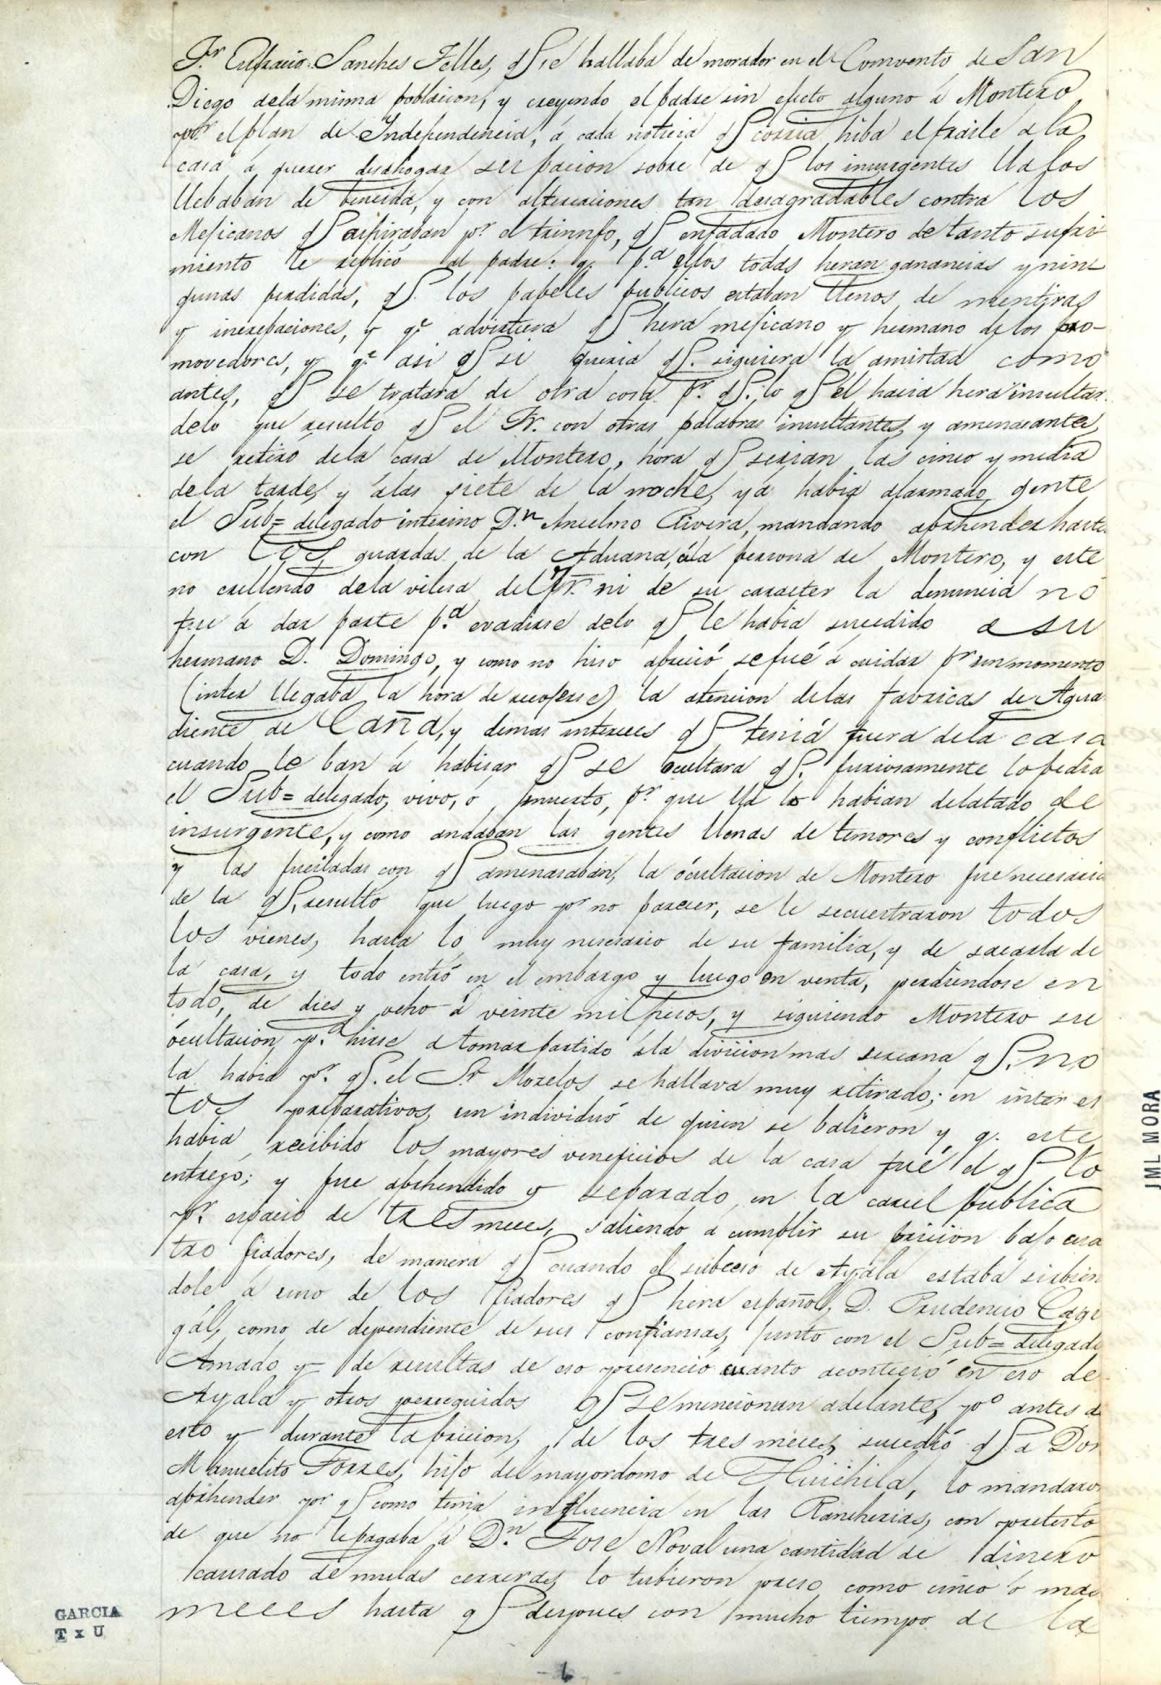 Fr. Eufracio Sanches Telles, qe. se hallaba de morador en el Comvento de San
Diego dela misma poblacion, y creyendo el padre sin efecto alguno á Montero
por el plan de Independencia, á cada noticia qe. corria, hiba el fraile a la
casa á querer desahogar su pacion sobre de qe. los insurgentes Ya los
llebaban de bencida, y con altercaciones tan desagradables contra los
Mejicanos qe. aspiraban pr. el triunfo, qe. enfadado Montero de tanto sufri-
miento le replicó al padre: q. pa. ellos todas heran ganancias y nin-
gunas perdidas, qe. los papeles publicos estaban llenos de mentiras
y increpaciones, y qe. advirtiera qe. hera mejicano y hermano de los pro-
movedores, y qe. asi qe. si queria qe. siguiera la amistad como
antes, qe. se tratara de otra cosa pr. qe. lo qe. el hacia hera insultar.
delo que resulto qe. el Fr. con otras palabras insultantes y amenasantes
se retiró dela casa de Montero, hora qe. serian las cinco y media
dela tarde, y alas siete de la noche, ya habia alarmado gente
el Sub=delegado interino Dn. Anselmo Rivera, mandando aprehender hasta
con los guardas de la Aduana, ála persona de Montero, y este
no crellendo dela vilesa del Fr. ni de su caracter la denuncia no
fue á dar parte pa. evadirse delo qe. le habia sucedido a su
hermano D. Domingo, y como no hiso apreció sefué á cuidar pr. un momento
(inter llegaba la hora de recojerse) la atencion delas fabricas de Agua
diente de Caña, y demas intereces qe. tenia fuera dela casa
cuando le ban á habisar qe. se ocultara qe. furiosamente lo pedia
el Sub=delegado, vivo, ó muerto, pr. que Ya lo habian delatado de
insurgente, y como andaban las gentes llenas de temores y conflictos
y las fuciladas con qe. amenasaban, la ócultacion de Montero fue necesaria
de la qe. resulto que luego pr. no parecer, se le secuestraron todos
los vienes, hasta lo muy nesesario de su familia, y de sacarla de
la casa, y todo entró en el embargo y luego en venta, perdiendose en
todo, de dies y ocho á veinte mil pesos, y siguiendo Montero su
ócultacion pa. hirse a tomar partido ála divicion mas sercana qe. no
la habia pr. qe. el Sr. Morelos se hallava muy retirado; en inter es
tos preparativos, un individuó de quien se balieron y q. este
habia recibido los mayores veneficios de la casa fué el qe. lo
entrego; y fue aprehendido y separado en la carcel publica
pr. espacio de tres meces, saliendo á cumplir su pricion bajo cua
tro fiadores, de manera qe. cuando el subceso de Ayala estaba sirbien
dole á uno de los fiadores qe. hera español, D. Prudencio Cagi
gál, como de dependiente de sus confiansas, junto con el Sub=delegado
Amado y de resultas de eso precencio cuanto acontecio en eso de
Ayala y otros perseguidos qe. se mencionan adelante, po. antes de
esto y durante la pricion, de los tres meces, sucedió qe. a Don
Manuelito Torres, hijo del mayordomo de Huichila, lo mandaron
aprehender por qe. como tenia influencia en las Rancherias, con pretesto
de que no le pagaba á Dn. Jose Noval una cantidad de dinero
causado de mulas cerreras, lo tubieron preso como cinco ó mas
meces hasta qe. despues con mucho tiempo de la
GARCIA
T x U
JML MORA